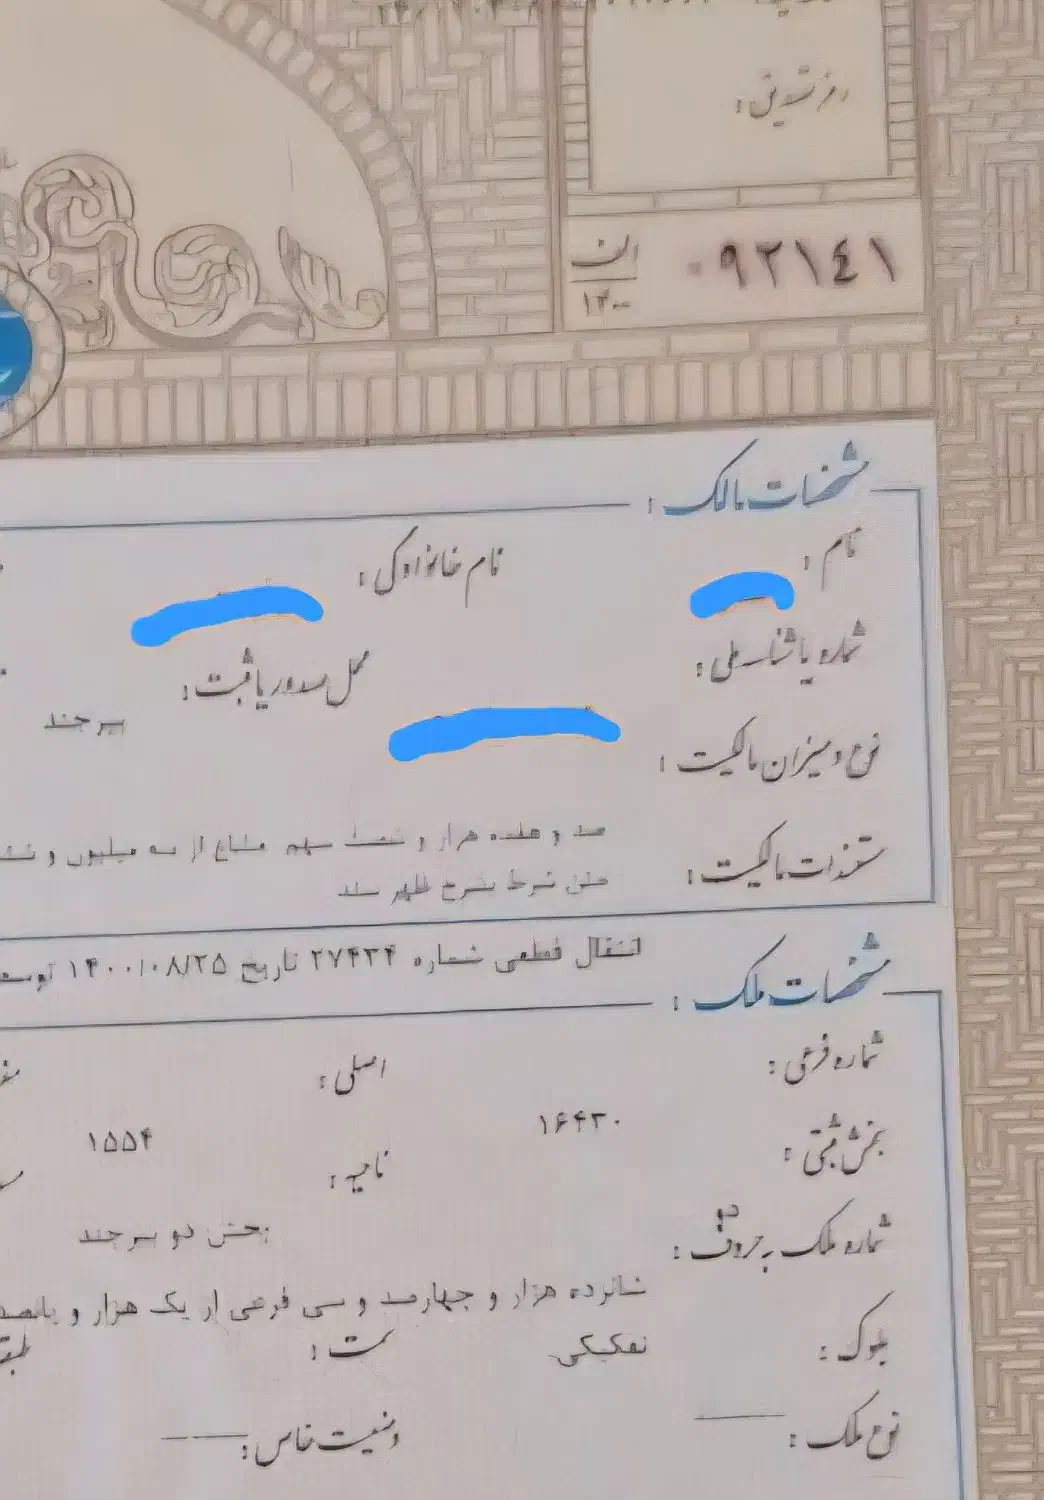 رمز تصدیق:
الف
۱۴۰۰
۰۹۲۱۴۱
مشخصات مالک:
نام:
نام خانوادگی:
شماره یا شناسه ملی:
محل صدور یا ثبت:
بیرجند
نوع و میزان مالکیت:
صد و هفده هزار و شصت سهم مشاع از سه میلیون و
مستندات مالکیت:
متن شرط بشرح ظهر سند
انتقال قطعی شماره ۲۷۴۳۴ تاریخ ۱۴۰۰/۰۸/۲۵ توسط
مشخصات ملک:
شماره فرعی:
اصلی:
۱۶۴۳۰
۱۵۵۴
بخش ثبتی:
ناحیه:
دو
بخش دو بیرجند
شماره ملک به حروف:
شانزده هزار و چهارصد و سی فرعی از یک هزار و پانصد
تفکیکی
بلوک:
سمت:
نوع ملک:
وضعیت خاص: